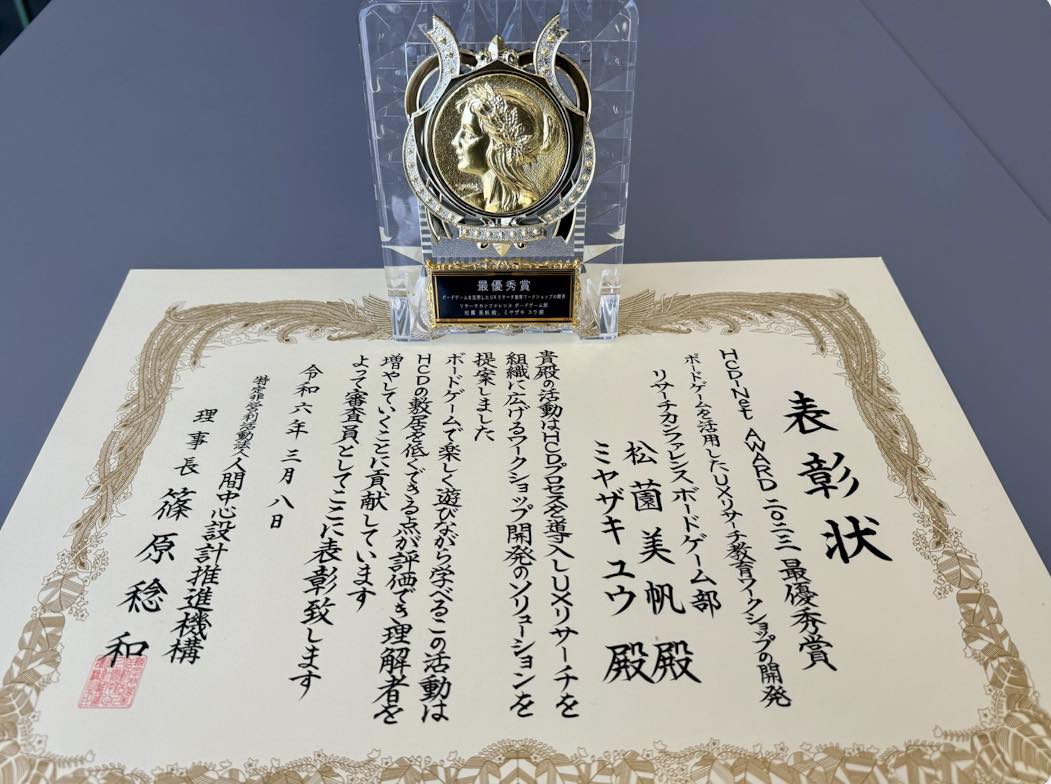 最優秀賞
ボードゲームを活用したUXリサーチ教育ワークショップの開発
リサーチカンファレンス ボードゲーム部
松薗 美帆 殿、ミヤザキ ユウ 殿
表彰状
HCD-Net AWARD 二〇二三 最優秀賞
ボードゲームを活用したUXリサーチ教育ワークショップの開発
リサーチカンファレンス ボードゲーム部
松薗美帆殿
ミヤザキユウ殿
貴殿の活動はHCDプロセスを導入しUXリサーチを
組織に広げるワークショップ開発のソリューションを
提案しました
ボードゲームで楽しく遊びながら学べるこの活動は
HCDの敷居を低くできる点が評価でき理解者を
増やしていくことに貢献しています
よって審査員としてここに表彰致します
令和六年三月八日
特定非営利活動法人 人間中心設計推進機構
理事長 篠原稔和